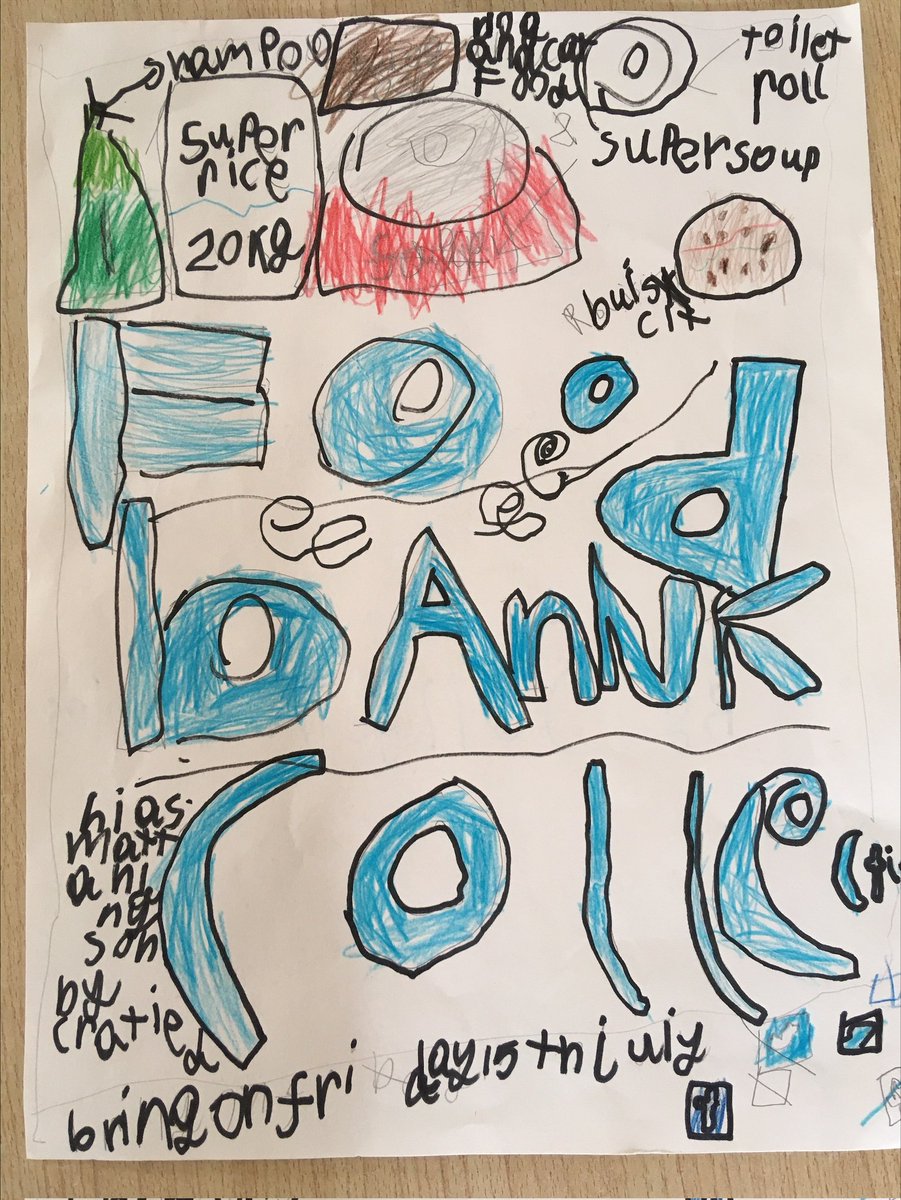 shampoo
dog
and cat
Food
toilet
roll
super
rice
20Kg
supersoup
buis
cit
Food
bAnNK
Colle
(fi
hias
matt
ahi
ng
son
by
cratied
bring on fri day 15th july
f